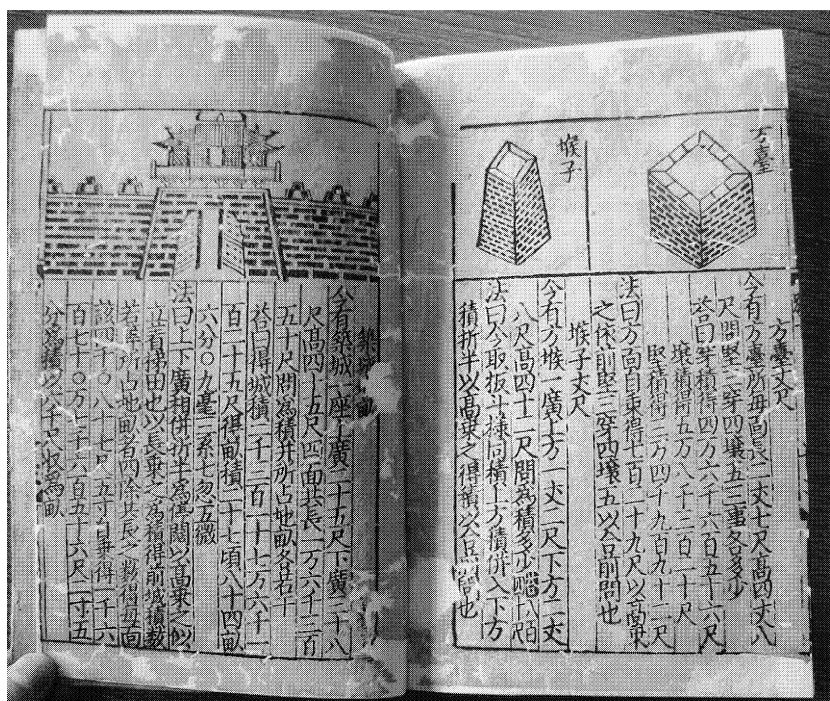 方臺
堠子
方臺丈尺
今有方臺所每面長二丈七尺高四丈八
尺問堅三穿四壤五三事各多少
荅曰穿積得四万六千六百五十六尺
壤積得五万八千百一十尺
堅積得三万四千九百九十二尺
法曰方面自乘得七百二十九尺以高乘
之依前堅三穿四壤五以合前問也
堠子丈尺
今有方堠一廣上方一丈二尺下方二丈
八尺高四十二尺問為積多少
法曰今取扳斗樣同積上方積併入下方
積折半以高乘之得以合問也
築城
今有築城一座上廣二十五尺下廣三十八
尺高四十五尺四面共長一万六千三百
五十尺問為積并所占地畝各若干
荅曰得城積二千三百一十七万六千一
百二十五尺得畝積二十七頃八十四畝
六分〇九毫三系七忽五微
法曰上下廣相併折半為停闊以高乘之似
立着梯田也以長乘之為積得前城積數
若筭所占地畝者四除共長之數得每面
該四千〇八十七尺五寸自乘得一千六
百七十〇万七千六百五十六尺二寸五
分為積以六千尺收為畝